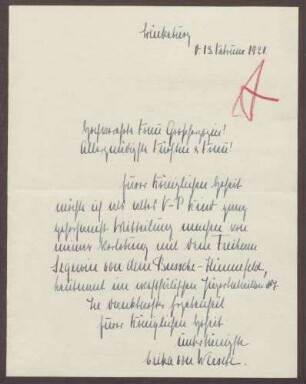 d. 13. Februar 1921
Hochverehrte Frau Großherzogin!
Allergnädigste Fürstin u. Frau!
Eurer Königlichen Hoheit
möchte ich als altes V-P Kind ganz
gehorsamst Mitteilung machen von
meiner Verlobung mit dem Freiherrn
von dem Bussche-Hünnefeld,
Leutnant im westfälischen
In dankbarster Ergebenheit
Eurer Königlichen Hoheit
untertänigste
Erika von